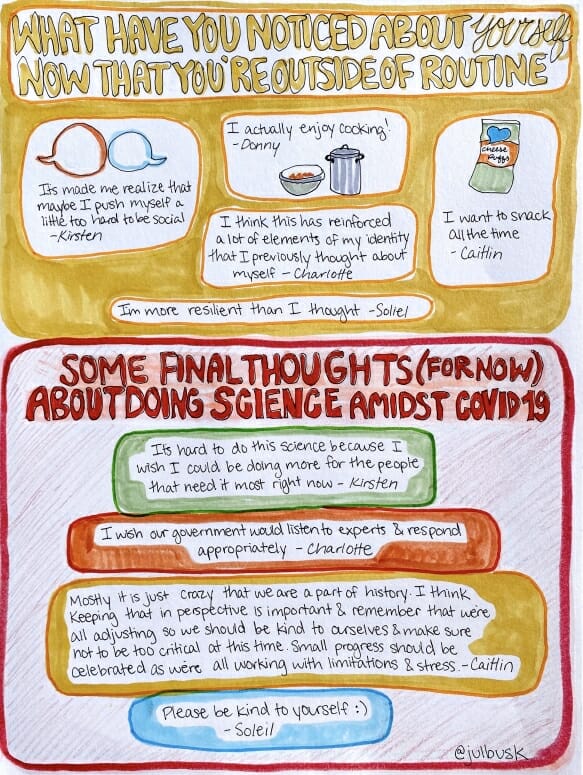 WHAT HAVE YOU NOTICED ABOUT yourself
NOW THAT YOU'RE OUTSIDE OF ROUTINE
Its made me realize that
maybe I push myself a
little too hard to be social
- Kirsten
I actually enjoy cooking!
- Donny
I think this has reinforced
a lot of elements of my identity
that I previously thought about
myself - Charlotte
cheese
puffs
I want to snack
all the time
- Caitlin
Im more resilient than I thought - Soliel
SOME FINAL THOUGHTS (FOR NOW)
ABOUT DOING SCIENCE AMIDST COVID19
Its hard to do this science because I
wish I could be doing more for the people
that need it most right now - Kirsten
I wish our government would listen to experts & respond
appropriately - Charlotte
Mostly it is just crazy that we are a part of history. I think
keeping that in perspective is important & remember that we're
all adjusting so we should be kind to ourselves & make sure
not to be too critical at this time. Small progress should be
celebrated as we're all working with limitations & stress. - Caitlin
Please be kind to yourself :)
- Soleil
@julbusk